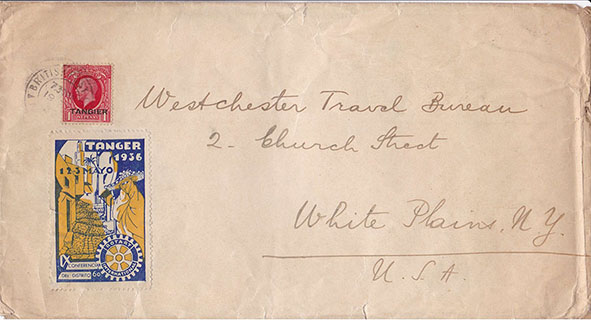 BRITISH
TANGIER
1
Westchester Travel Bureau
2 - Church Street
White Plains, N.Y.
U.S.A.
TANGER
1936
1 2 3 MAYO
IX
CONFERENCIA
DEL DISTRITO 66
ROTARY
INTERNATIONAL